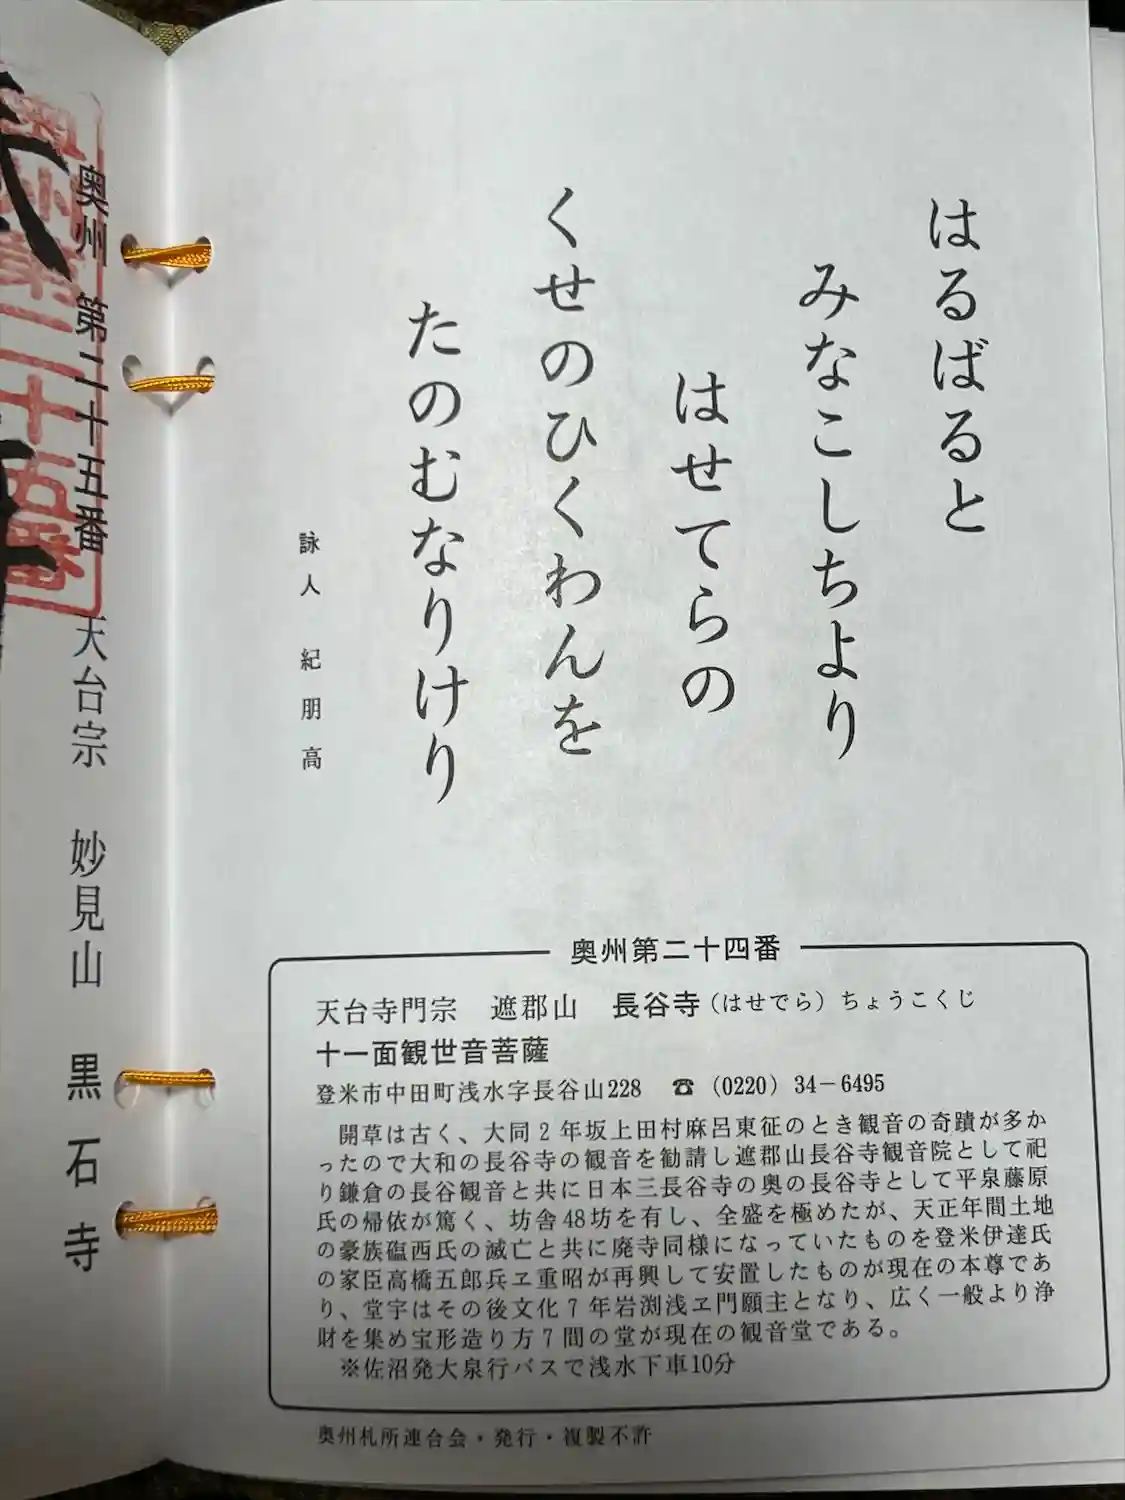 はるばると
みなこしちより
はせてらの
くせのひくわんを
たのむなりけり
詠人 紀朋高
奥州第二十四番
天台寺門宗 遮郡山 長谷寺（はせでら）ちょうこくじ
十一面観世音菩薩
登米市中田町浅水字長谷山228 ☎（0220）34－6495
開草は古く、大同2年坂上田村麻呂東征のとき観音の奇蹟が多か
ったので大和の長谷寺の観音を勧請し遮郡山長谷寺観音院として祀
り鎌倉の長谷観音と共に日本三長谷寺の奥の長谷寺として平泉藤原
氏の帰依が篤く、坊舎48坊を有し、全盛を極めたが、天正年間土地
の豪族西氏の滅亡と共に廃寺同様になっていたものを登米伊達氏
の家臣高橋五郎兵ヱ重昭が再興して安置したものが現在の本尊であ
り、堂宇はその後文化7年岩渕浅ヱ門願主となり、広く一般より浄
財を集め宝形造り方7間の堂が現在の観音堂である。
※佐沼発大泉行バスで浅水下車10分
奥州札所連合会・発行・複製不許
奥州 第二十五番 天台宗 妙見山 黒石寺